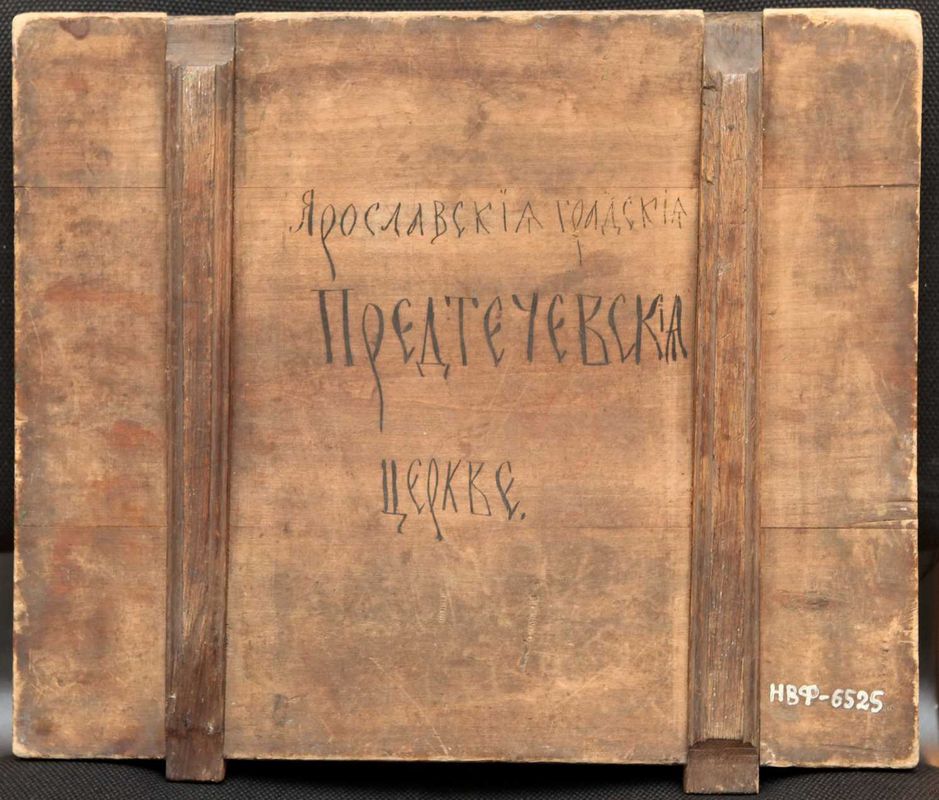 Ярославскїѧ градскїѧ
Предтечевскїѧ
церкве.
НВФ-6525